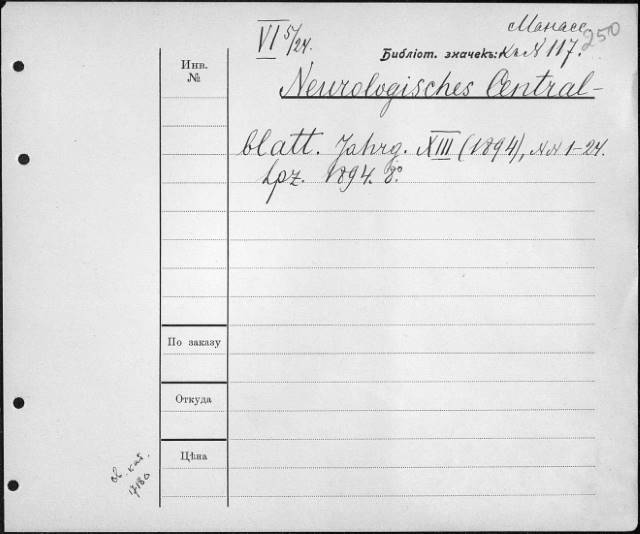 Манассе
250
VI 5/24.
Библіот. значекъ: К. № 117.
Инв.
№
Neurologisches Central-
blatt. Jahrg. XIII (1894), №№ 1-24.
Lpz. 1894. 8º.
По заказу
Откуда
Цѣна
кат.